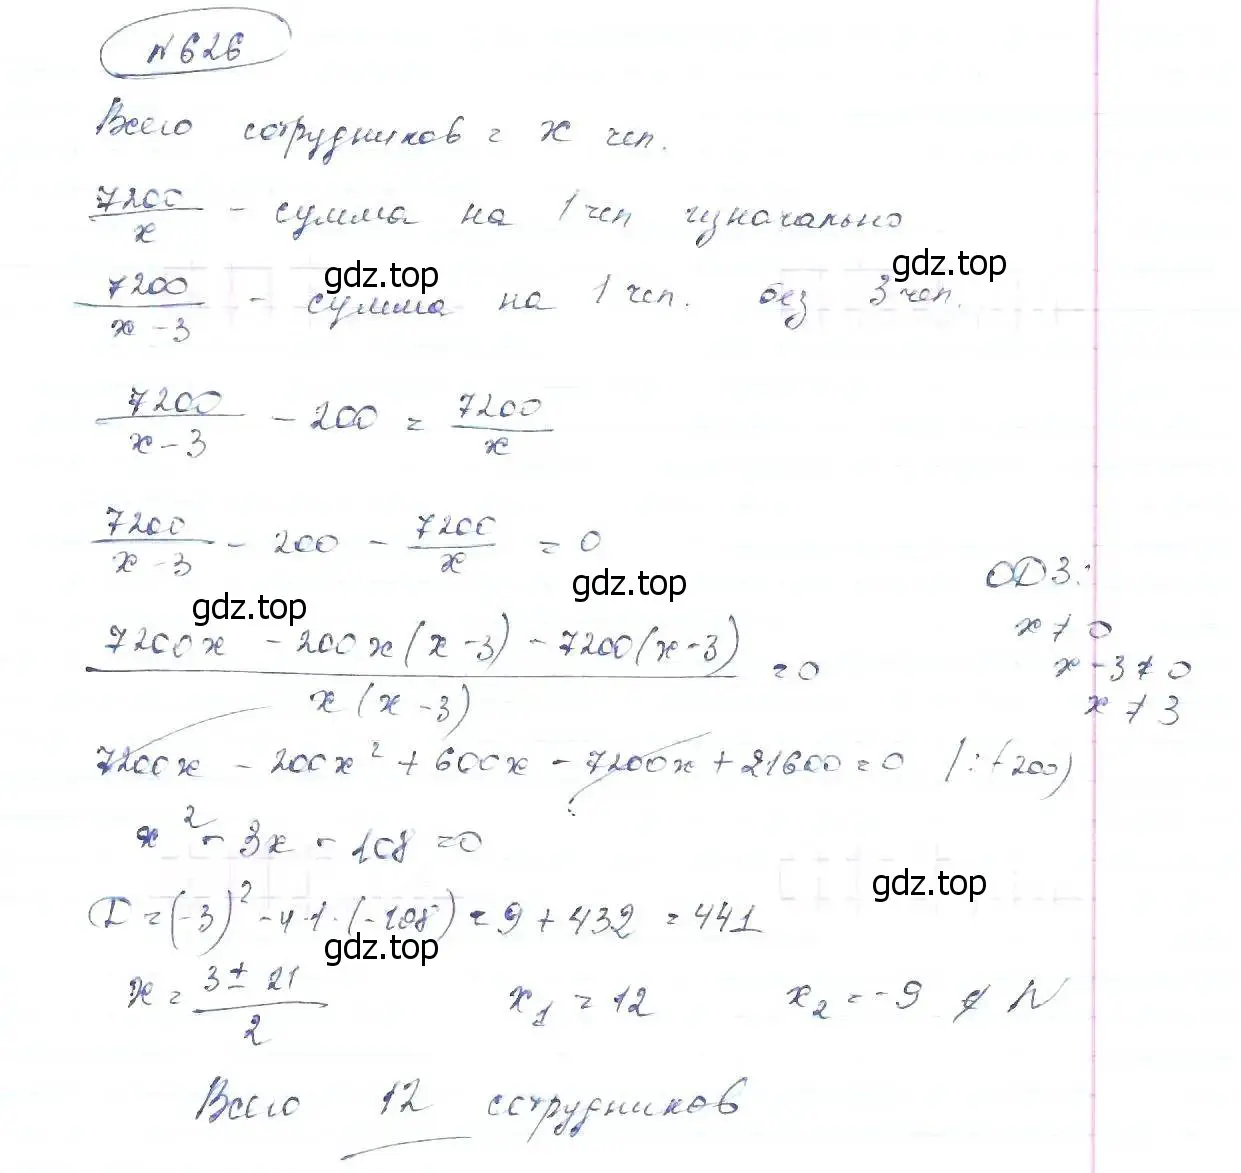 №626
Всего сотрудников = x чел.
7200/x - сумма на 1 чел изначально
gdz.top
gdz.top
7200/(x-3) - сумма на 1 чел. без 3 чел.
7200/(x-3) - 200 = 7200/x
7200/(x-3) - 200 - 7200/x = 0
ОДЗ:
gdz.top
gdz.top
x ≠ 0
(7200x - 200x(x-3) - 7200(x-3))/(x(x-3)) = 0
x-3≠0
x ≠ 3
7200x - 200x² + 600x - 7200x + 21600 = 0 |:(-200)
x² - 3x - 108 = 0
gdz.top
D = (-3)² - 4·1·(-108) = 9 + 432 = 441
gdz.top
x = (3 ± 21)/2 x₁ = 12 x₂ = -9 ∉ N
Всего 12 сотрудников